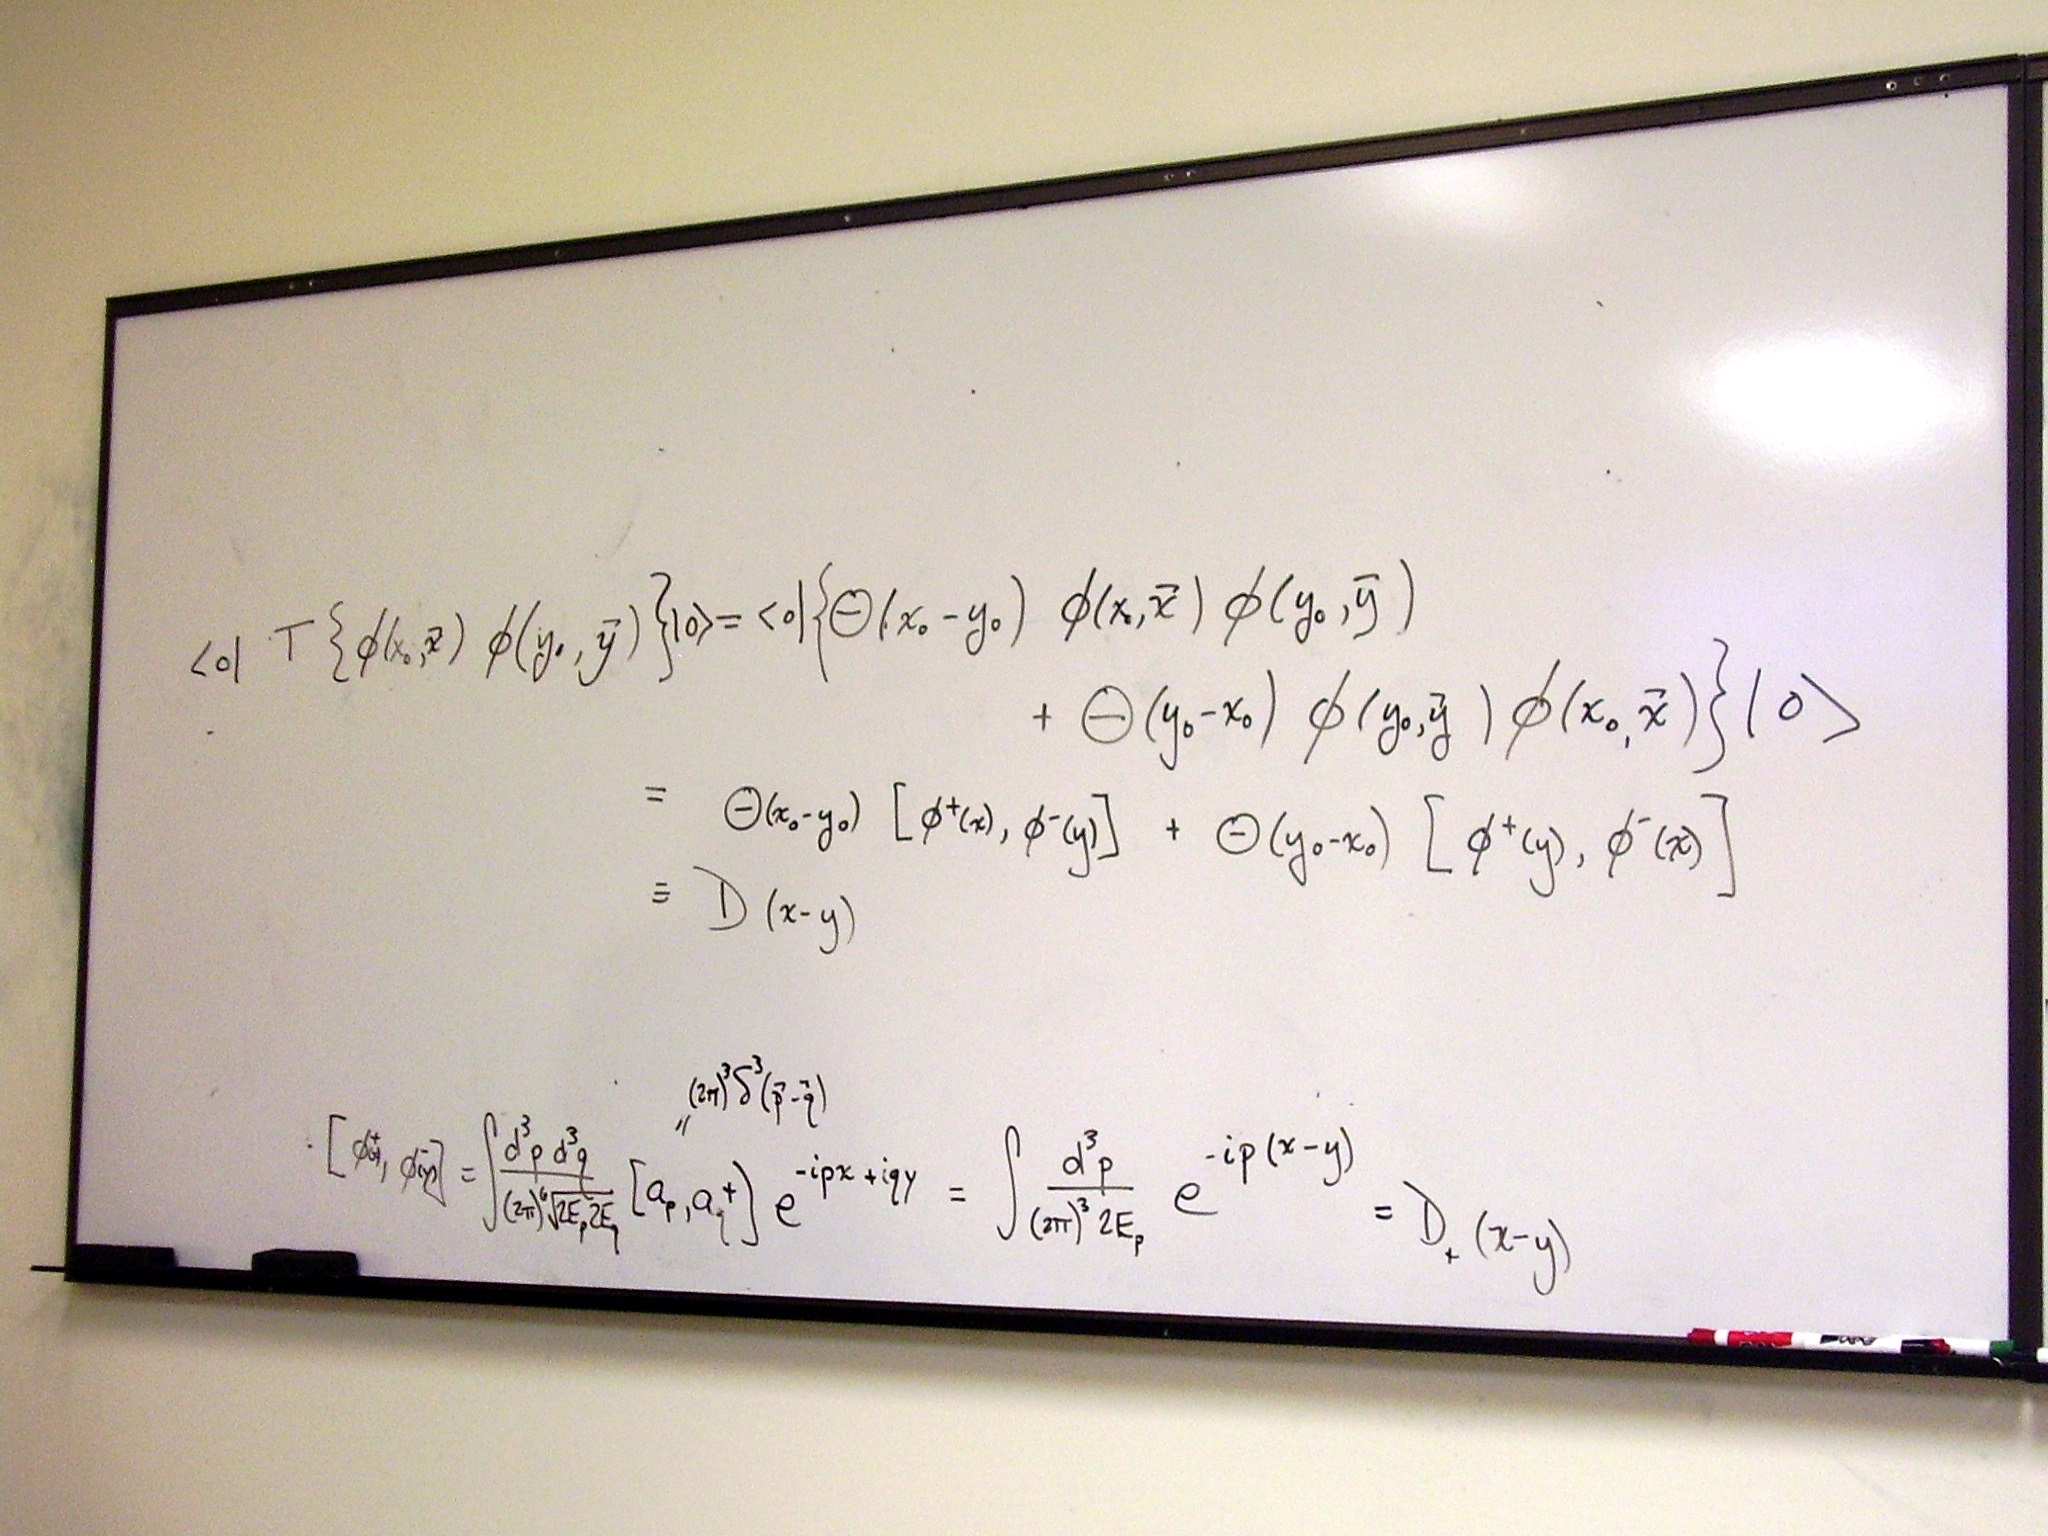 <0| T{ϕ(x₀,x⃗) ϕ(y₀,y⃗)}|0> = <0|{Θ(x₀-y₀) ϕ(x₀,x⃗) ϕ(y₀,y⃗)
+ Θ(y₀-x₀) ϕ(y₀,y⃗) ϕ(x₀,x⃗)}|0>
= Θ(x₀-y₀) [ϕ⁺(x), ϕ⁻(y)] + Θ(y₀-x₀) [ϕ⁺(y), ϕ⁻(x)]
≡ D(x-y)
(2π)³δ³(p⃗-q⃗)
[ϕ⁺(x), ϕ⁻(y)] = ∫ d³p d³q / (2π)⁶√(2E_p 2E_q) [a_p, a_q†] e^{-ipx+iqy} = ∫ d³p / (2π)³ 2E_p e^{-ip(x-y)} = D₊(x-y)